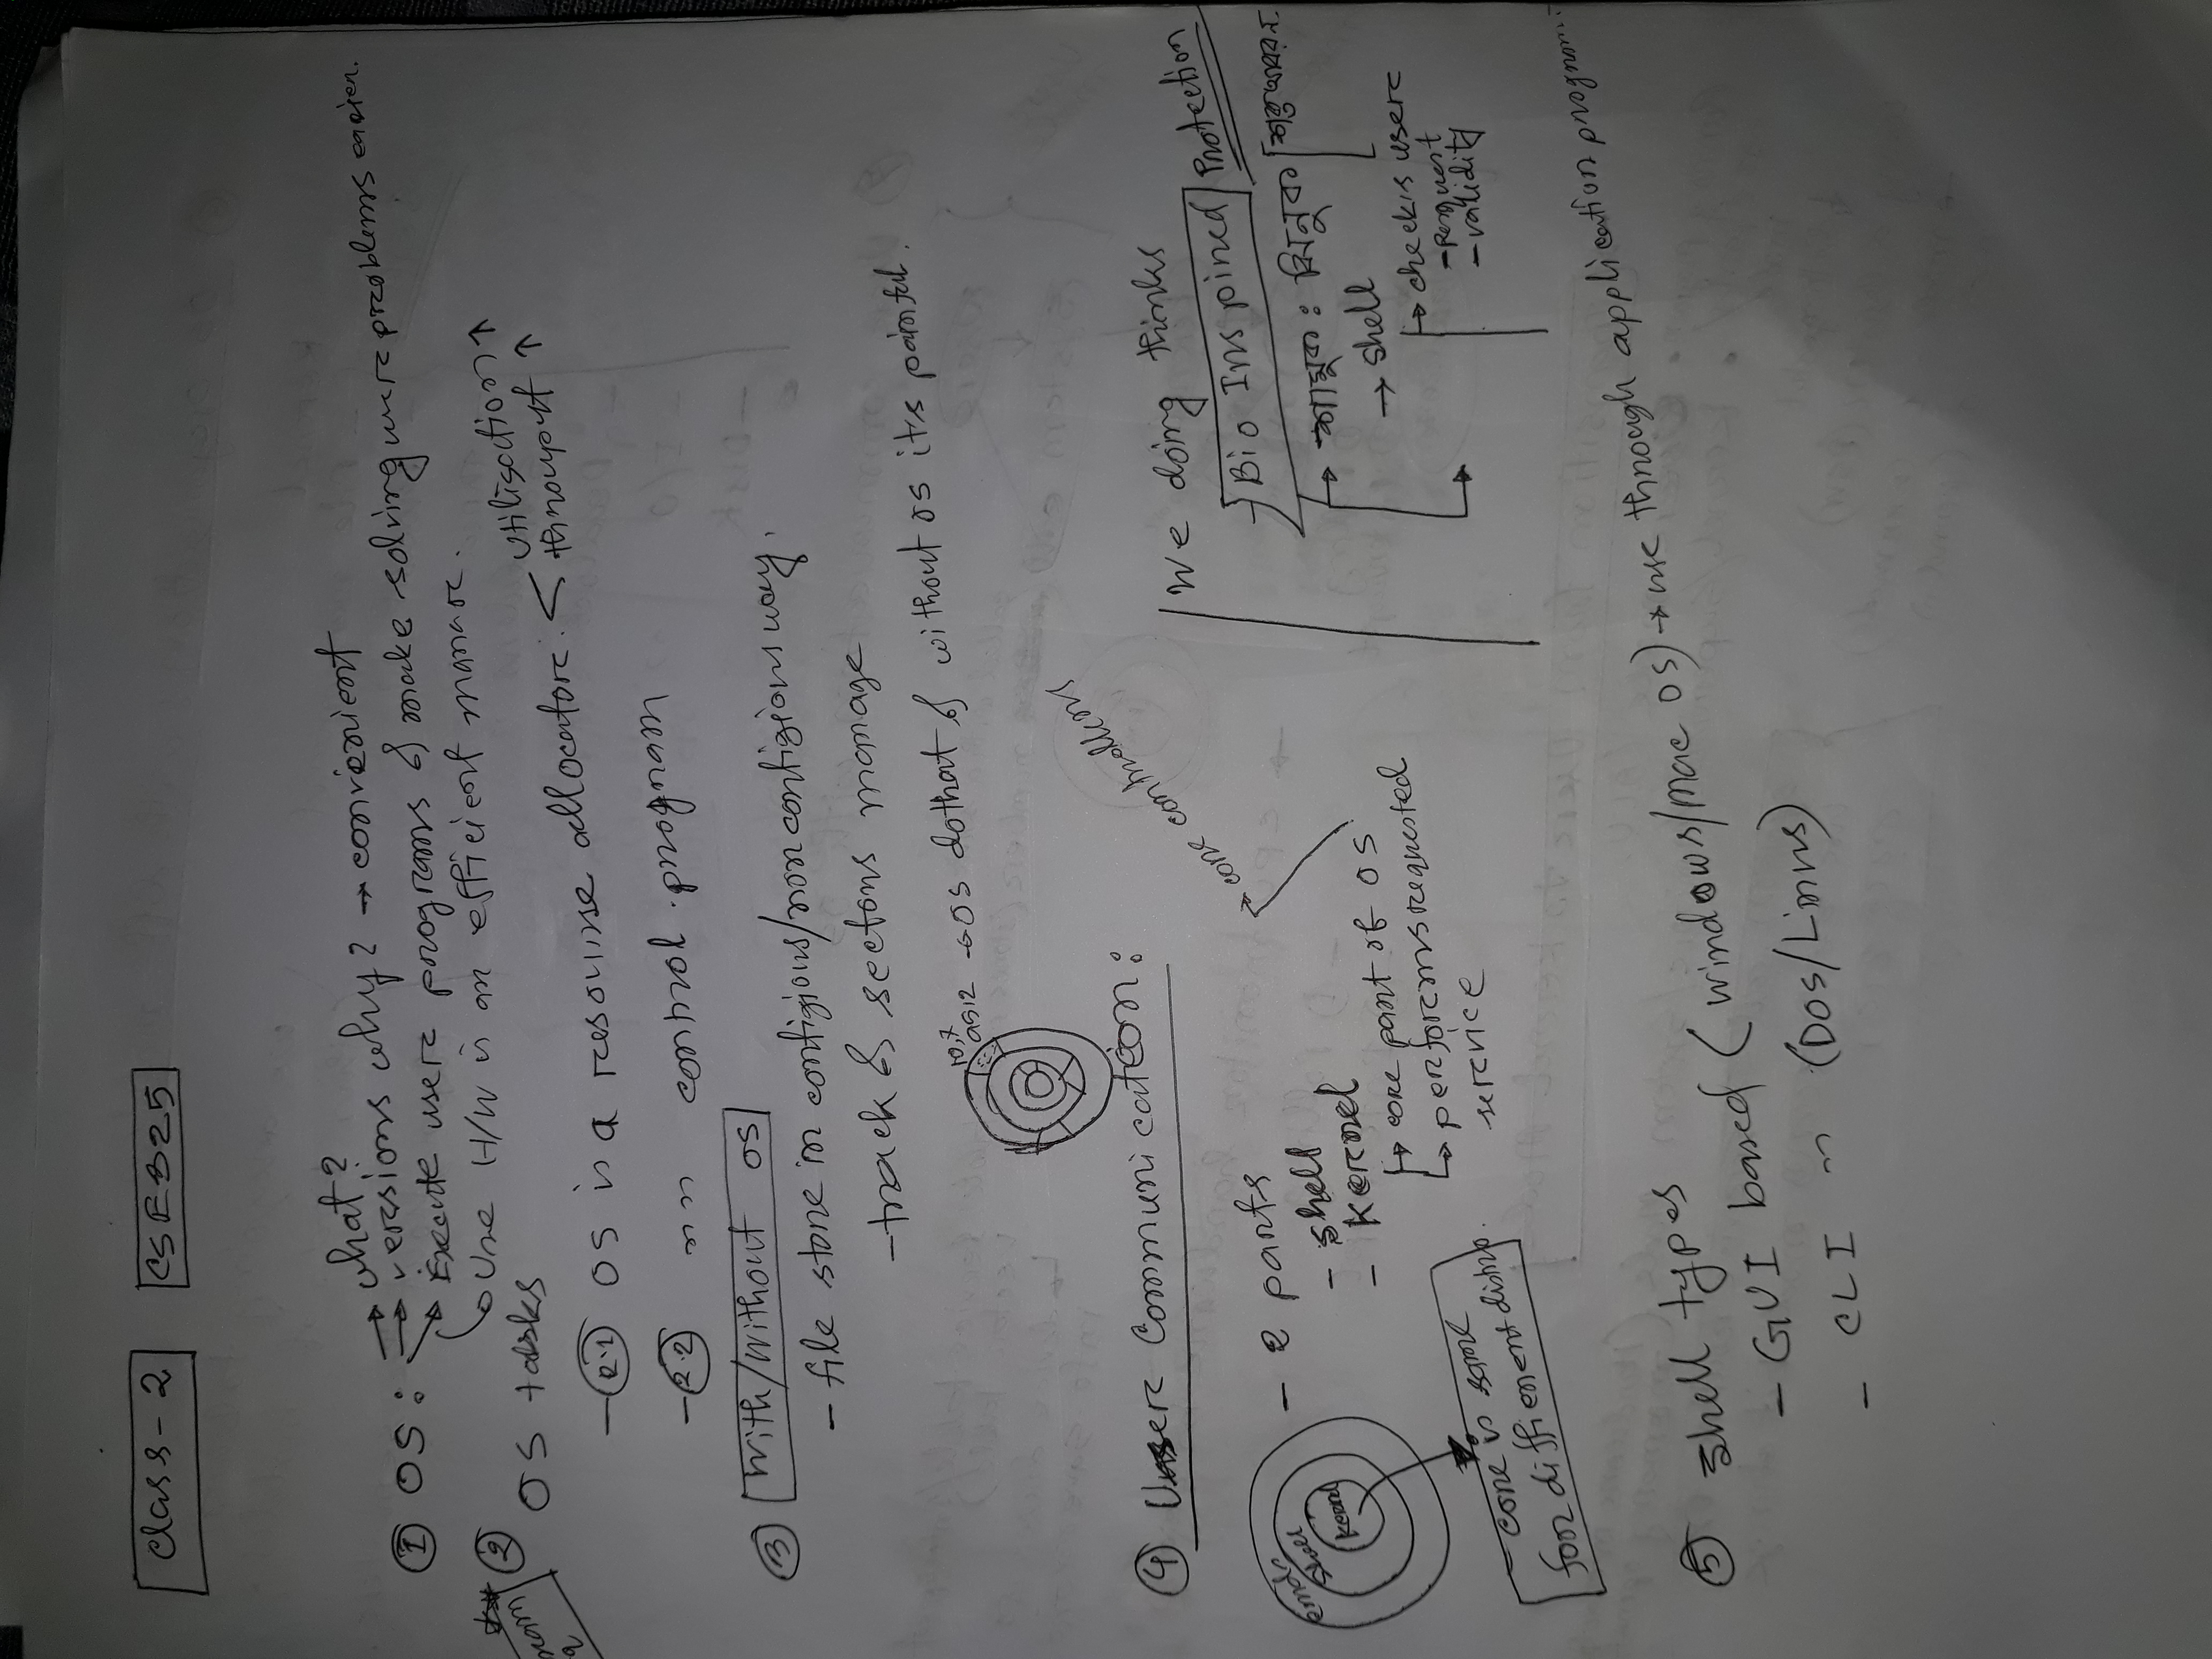 Class-2 CSE325
① OS: → what?
→ versions why? → convenient
→ Execute user programs & make solving user problems easier.
→ Use H/W in an efficient manner.
② OS tasks
- 2.1 OS is a resourse allocator. < utilisation ↑
throuput ↑
- 2.2 " " control program
③ With/Without OS
- file store in contigious/noncontigious way.
- track & sectors manage
10,7 512 → OS do that & without os its painful.
④ User Communication:
- 2 parts
- shell
- Kernel
→ core part of OS
→ performs requested
service
Kernel
= core is same
for different distrib.
We doing thinks
Bio Inspired Protection
→ shell
→ checks user
- request
- validity
⑤ shell types
- GUI based (windows/mac OS) → use through application program
- CLI " (Dos/Linus)